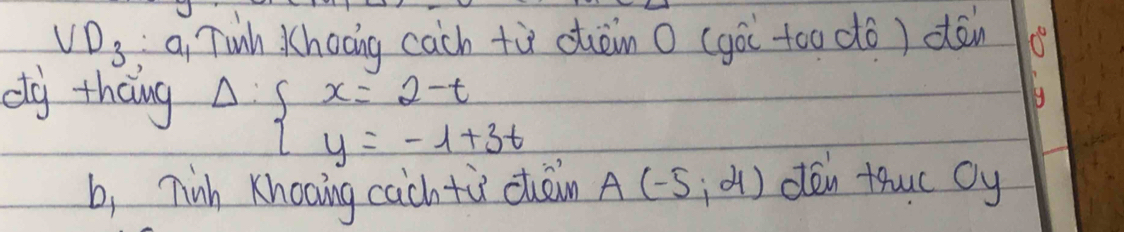 VD3: a, Tính khoảng cách từ điểm O (gốc toạ độ) đến
đg thẳng Δ: { x = 2-t
y = -1+3t
b, Tính khoảng cách từ điểm A (-5; 21) đến trục Oy